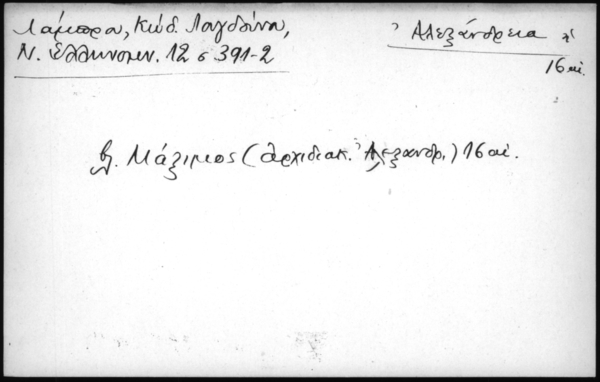 Λάμπρου, Κώδ. Λαγδούνα,
Ν. Ἑλληνομν. 12 σ 391-2
Ἀλεξάνδρεια
16 αἰ.
βλ. Μάξιμος (ἀρχιδιακ. Ἀλεξανδρ.) 16 αἰ.